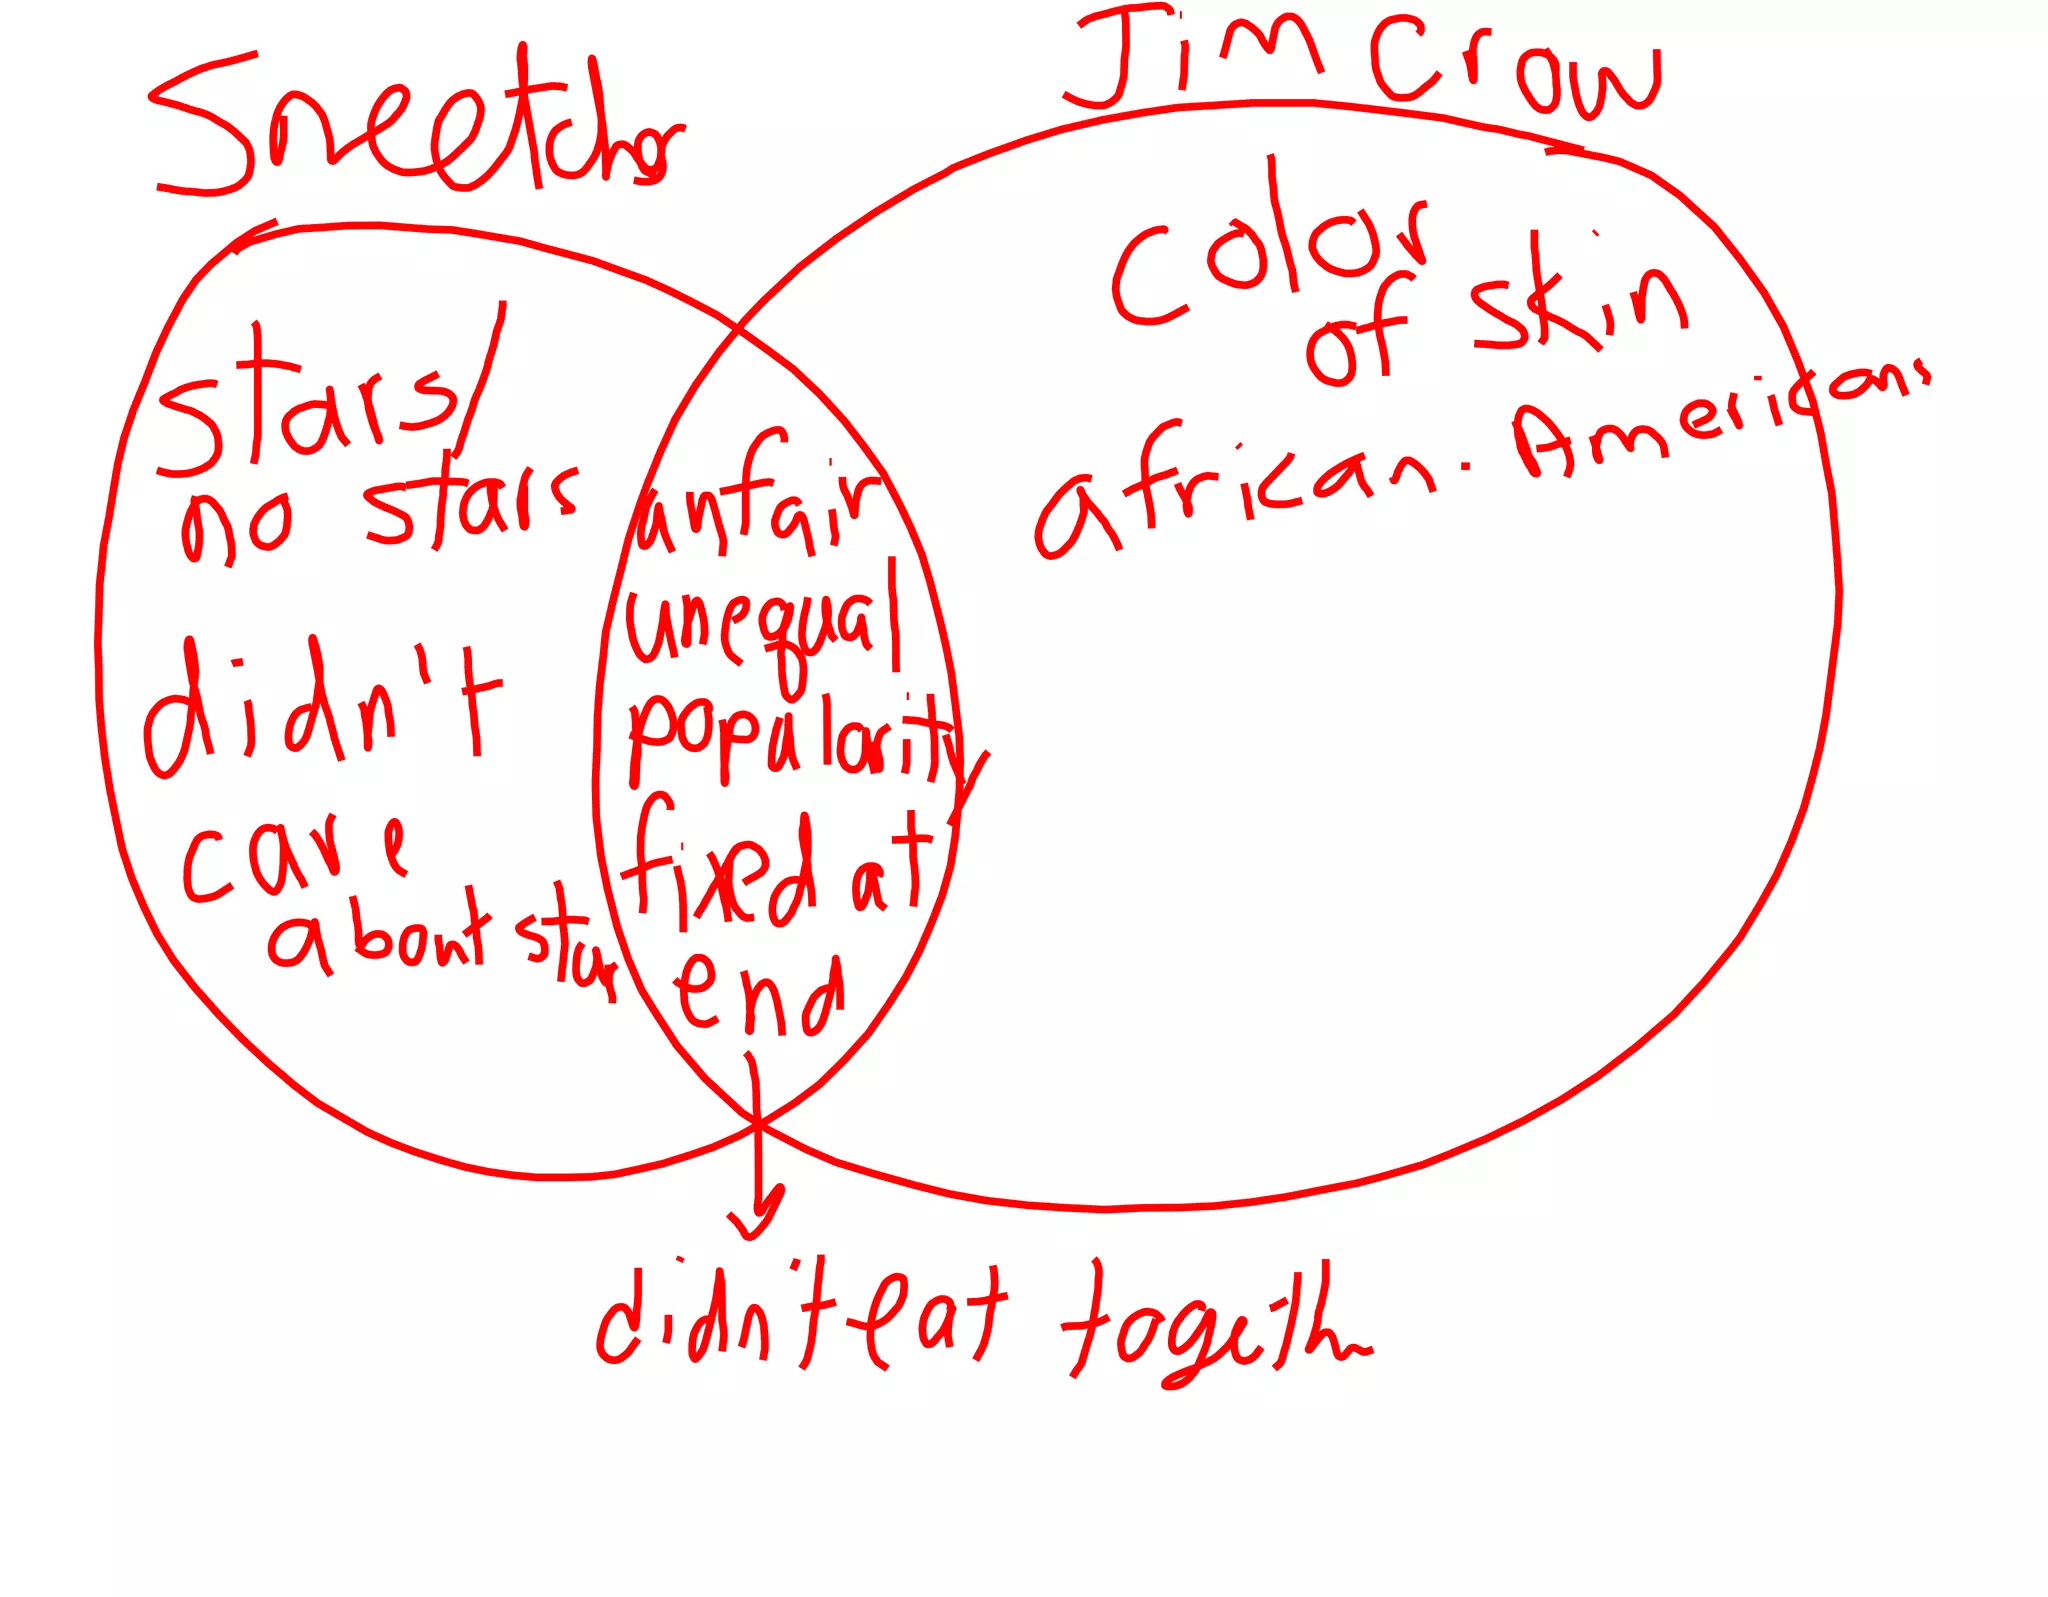 Sneetches
Jim Crow
stars/
no stars
didn't
care
about star
unfair
unequal
popularity
fixed at
end
color
of skin
african-Americans
didn't eat togeth